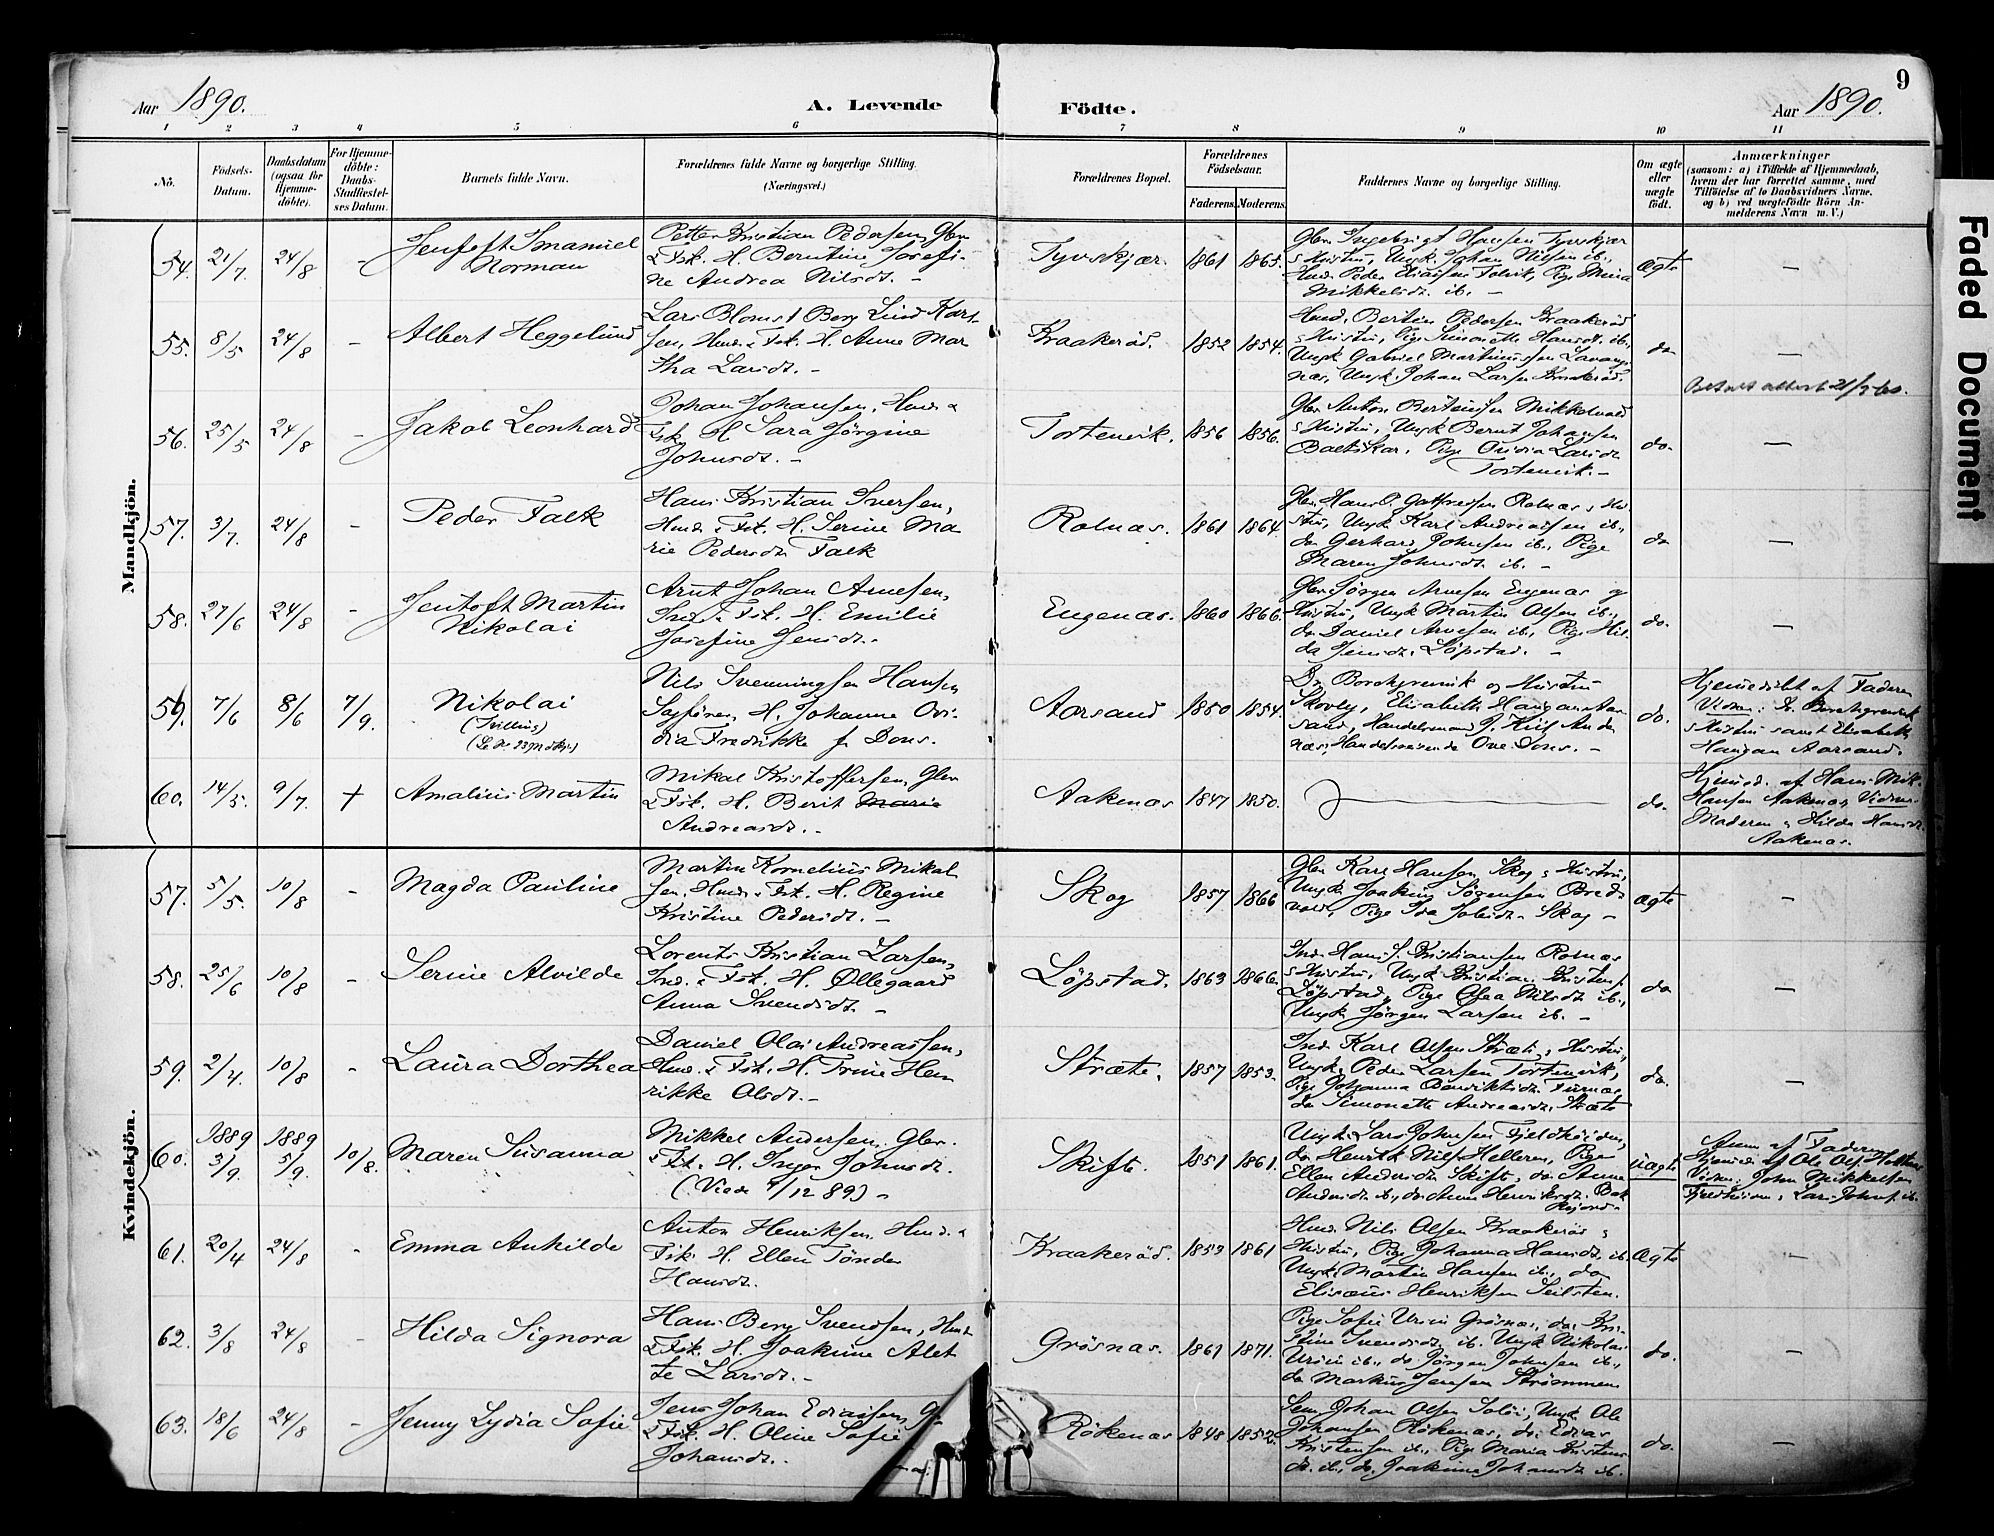 9
Aar 1890.
A. Levende Födte.
Aar 1890.
1 2 3 4 5 6 7 8 9 10 11
No.
Födsels-
Datum.
Daabsdatum
(ogsaa for
Hjemme-
döbte).
For Hjemme-
döbte:
Daabs-
Stadfæstel-
ses Datum.
Barnets fulde Navn.
Forældrenes fulde Navne og borgerlige Stilling.
(Næringsvei.)
Forældrenes Bopæl.
Forældrenes
Födselsaar.
Faderens. Moderens.
Faddernes Navne og borgerlige Stilling.
Om ægte
eller
uægte
födt.
Anmærkninger
(saasom: a) i Tilfælde af Hjemmedaab,
hvem der har forrettet samme, med
Tilföielse af to Daabsvidners Navne,
og b) ved uægtefödte Börn An-
melderens Navn m. V.)
Mandkjön.
54. 21/7. 24/8 -
Jentoft Imanuel
Norman
Petter Kristian Pedersen, Gbr.
& Fsk. H. Berntine Josefi-
ne Andrea Nilsdt. -
Tyvskjær. 1861 1865.
Gbr. Ingebrigt Hansen Tyvskjær
& Hustru, Ungk. Johan Nilsen ib.,
Hmd. Peder Eliassen Tovik, Pige Maria
Mikkelsdt. ib. -
Ægte -
55. 8/5 24/8 -
Albert Heggelund
Lars Blomst Berg Lind Kars-
sen, Hmd. & Fsk. H. Anne Mar
tha Larsdt. -
Kraakeröd. 1852 1854.
Hmd. Bertin Pedersen Kraakeröd
& Hustru, Pige Simonette Hansdt. ib.,
Ungk. Gabriel Martinussen Lavang-
næs, Ungk. Johan Larsen Kraakeröd.
do -
56. 25/5 24/8 -
Jakob Leonhard
Johan Johansen, Hmd. &
Fsk. H. Sara Jörgine
Johnsdt. -
Tortenvik. 1856 1856.
Gbr. Anton Berteussen Mikkelvold
& Hustru, Ungk. Bernt Johansen
Baltskar, Pige Ovidia Larsdt.
Tortenvik. -
do. -
57. 3/7. 24/8 -
Peder Falk
Hans Kristian Iversen,
Hmd. & Fsk. H. Serine Ma
rie Pedersdt. Falk
Rolnæs. 1861 1864.
Gbr. Hans P. Gotfredsen Rolnæs & Hu
stru, Ungk. Karl Andreassen ib.,
do Gerhard Johnsen ib., Pige
Maren Johnsdt. ib. -
do -
58. 27/6 24/8 -
Jentoft Martin
Nikolai
Arnt Johan Arnesen,
Ind. & Fsk. H. Emilie
Josefine Jensdt. -
Engenæs. 1860 1866.
Gbr. Jörgen Arnesen Engenæs og
Hustru, Ungk. Martin Olsen ib.,
do Daniel Arnesen ib., Pige Hil-
da Jensdt. Löpstad. -
do. -
59. 7/6 8/6 7/9.
Nikolai
(Tvilling)
Nils Svenningsen Hansen
Sagförer, H. Johanne Ovi-
dia Fredrikke f. Dons.
Aarsand 1850 1854.
Dr. Borchgrevink og Hustru
Skovly, Elisabeth Haugan Aar
sand, Handelsmand J. Kiil Ander
næs, Handelsreisende Ove Dons. -
do.
Hjemmedöbt af Faderen
Vidner: Dr. Borchgrevink
& Hustru samt Elisabeth
Haugan Aarsand.
60. 14/5. 9/7. +
Amalius Martin
Mikal Kristoffersen, Gbr.
& Fsk. H. Berit Marie
Andreasdt. -
Aakenæs 1847 1850.
do.
Hjemmed. af Hans Mik.
Hansen Aakenæs, Vidner:
Moderen & Hilda Hansdt.
Aakenæs.
Kvindekjön.
57. 5/5. 10/8 -
Magda Pauline
Martin Kornelius Mikal
sen, Hmd. & Fsk. H. Regine
Kristine Pedersdt. -
Skog 1857 1866
Gbr. Karl Hansen Skog & Hustru,
Ungk. Joakim Sörensen Breds
vold, Pige Ida Jakobsdt. Skog -
Ægte -
58. 25/6 10/8 -
Serine Alvilde
Lorents Kristian Larsen,
Ind. & Fsk. H. Øllegaard
Anna Svendsdt. -
Löpstad. 1863 1866.
Ind. Hans J. Kristiansen Rolnæs
& Hustru, Ungk. Kristian Kristens.
Löpstad, Pige Olea Nilsdt. ib.,
Ungk. Jörgen Larsen ib. -
do -
59. 2/4. 10/8 -
Laura Dorthea
Daniel Olai Andreassen,
Hmd. & Fsk. H. Trine Hen
rikke Olsdt. -
Stræte. 1857 1853.
Ind. Karl Olsen Stræte & Hustru,
Ungk. Peder Larsen Tortenvik,
Pige Johanna Benediktsdt. Furnæs
do Simonette Andreasdt. Stræte
do. -
60. 1889 3/9. 1889 5/9. 10/8.
Maren Susanna
Mikkel Andersen, Gbr.
& Fsk. H. Inger Johnsdt.
(Viede 4/12 89) -
Skifte. 1851 1861.
Ungk. Lars Johnsen Fjeldheim,
do Henrik Nils. Helleren, Pige
Ellen Andersdt. Skift, do Anne
Andersdt. ib., do Anne Henriksdt.
uægte
Anm. af Faderen
Hjemmed. af Ole Ols.
Vidner: John Mikkelsen
Fjeldheim & Lars Johns. ib.
61. 20/4 24/8 -
Emma Ankilde
Anton Henriksen, Hmd. &
Fsk. H. Ellen Tönder
Hansdt.
Kraakeröd. 1853 1861
Hmd. Nils Olsen Kraakeröd &
Hustru, Pige Johanna Hansdt. ib.
Ungk. Martin Hansen ib., do
Elisæus Henriksen Seilsten.
Ægte -
62. 3/8 24/8 -
Hilda Signora
Hans Berg Svendsen, Hmd.
& Fsk. H. Joakime Alet
te Larsdt. -
Grösnæs. 1861 1871.
Pige Sofie Ursin Grösnæs, do. Kri-
stine Svendsdt. ib. Ungk. Nikolai
Ursin ib., do. Jörgen Johnsen ib.,
do Markus Jensen Strömmen
do. -
63. 18/6 24/8 -
Jenny Lydia Sofie
Jens Johan Ediassen, G.
& Fsk. H. Oline Sofie
Johansdt. -
Rökenæs 1848 1852.
Sem. Johan Olsen Salöi, Ungk. Ole
Johansen Rökenæs, do. Edias
Kristensen ib., Pige Maria Kristens
dt. ib., do. Joakima Johansdt. ib.
do. -
Faded Document